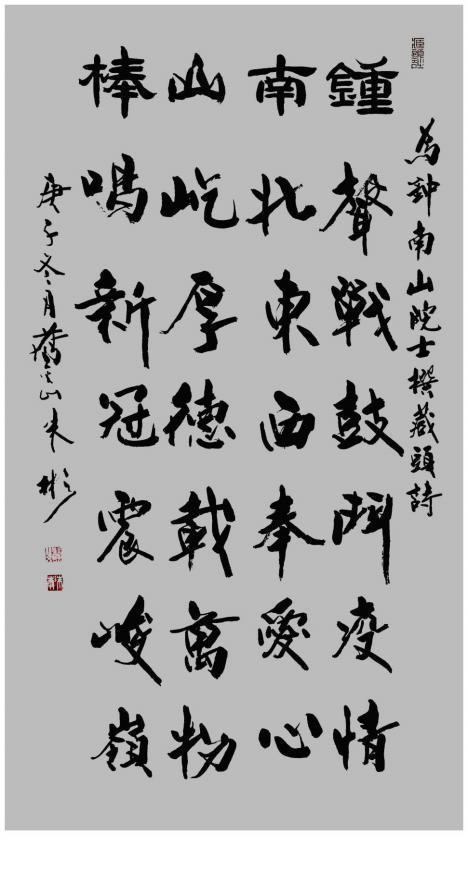 為鍾南山院士撰藏頭詩
鍾聲戰鼓鬥疫情
南北東西奉愛心
山屹厚德載萬物
棒鳴新冠震峻嶺
庚子冬月 山朱彬